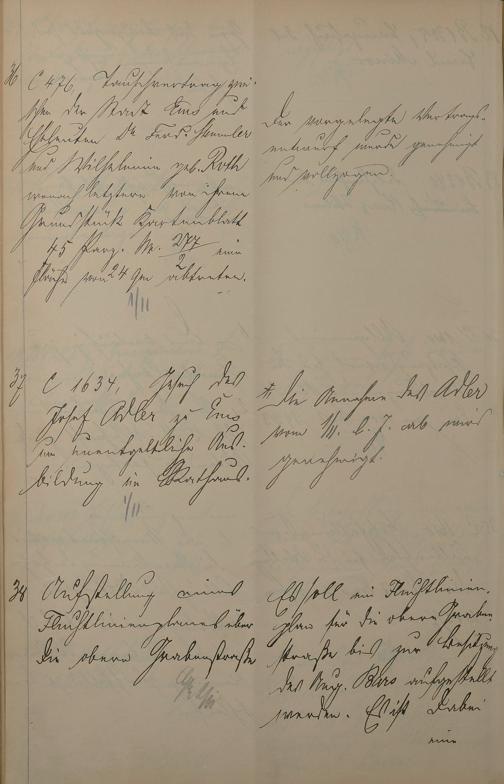 36
C 476, Tauschvertrag zwi-
schen der Stadt Ems und
Eheleuten Dr. Ferd. Stemmler
und Wilhelmine geb. Roth
wonach letztere von ihrem
Grundstück Kartenblatt
45 Parz. Nr. 277/2 eine
Fläche von 24 qm abtreten.
1/II
Der vorgelegte Vertrags-
entwurf wurde genehmigt
und vollzogen.
37
C 1634, Gesuch des
Josef Adler zu Ems
um unentgeltliche Aus-
bildung im Rathaus.
1/II
Die Annahme des Adler
vom l. J. ab wird
genehmigt.
38
Aufstellung eines
Fluchtlinienplanes über
die obere Grabenstraße
Es soll ein Fluchtlinien-
plan für die obere Graben-
straße bis zur Besitzung
des Aug. aufgestellt
werden. Es ist dabei
eine